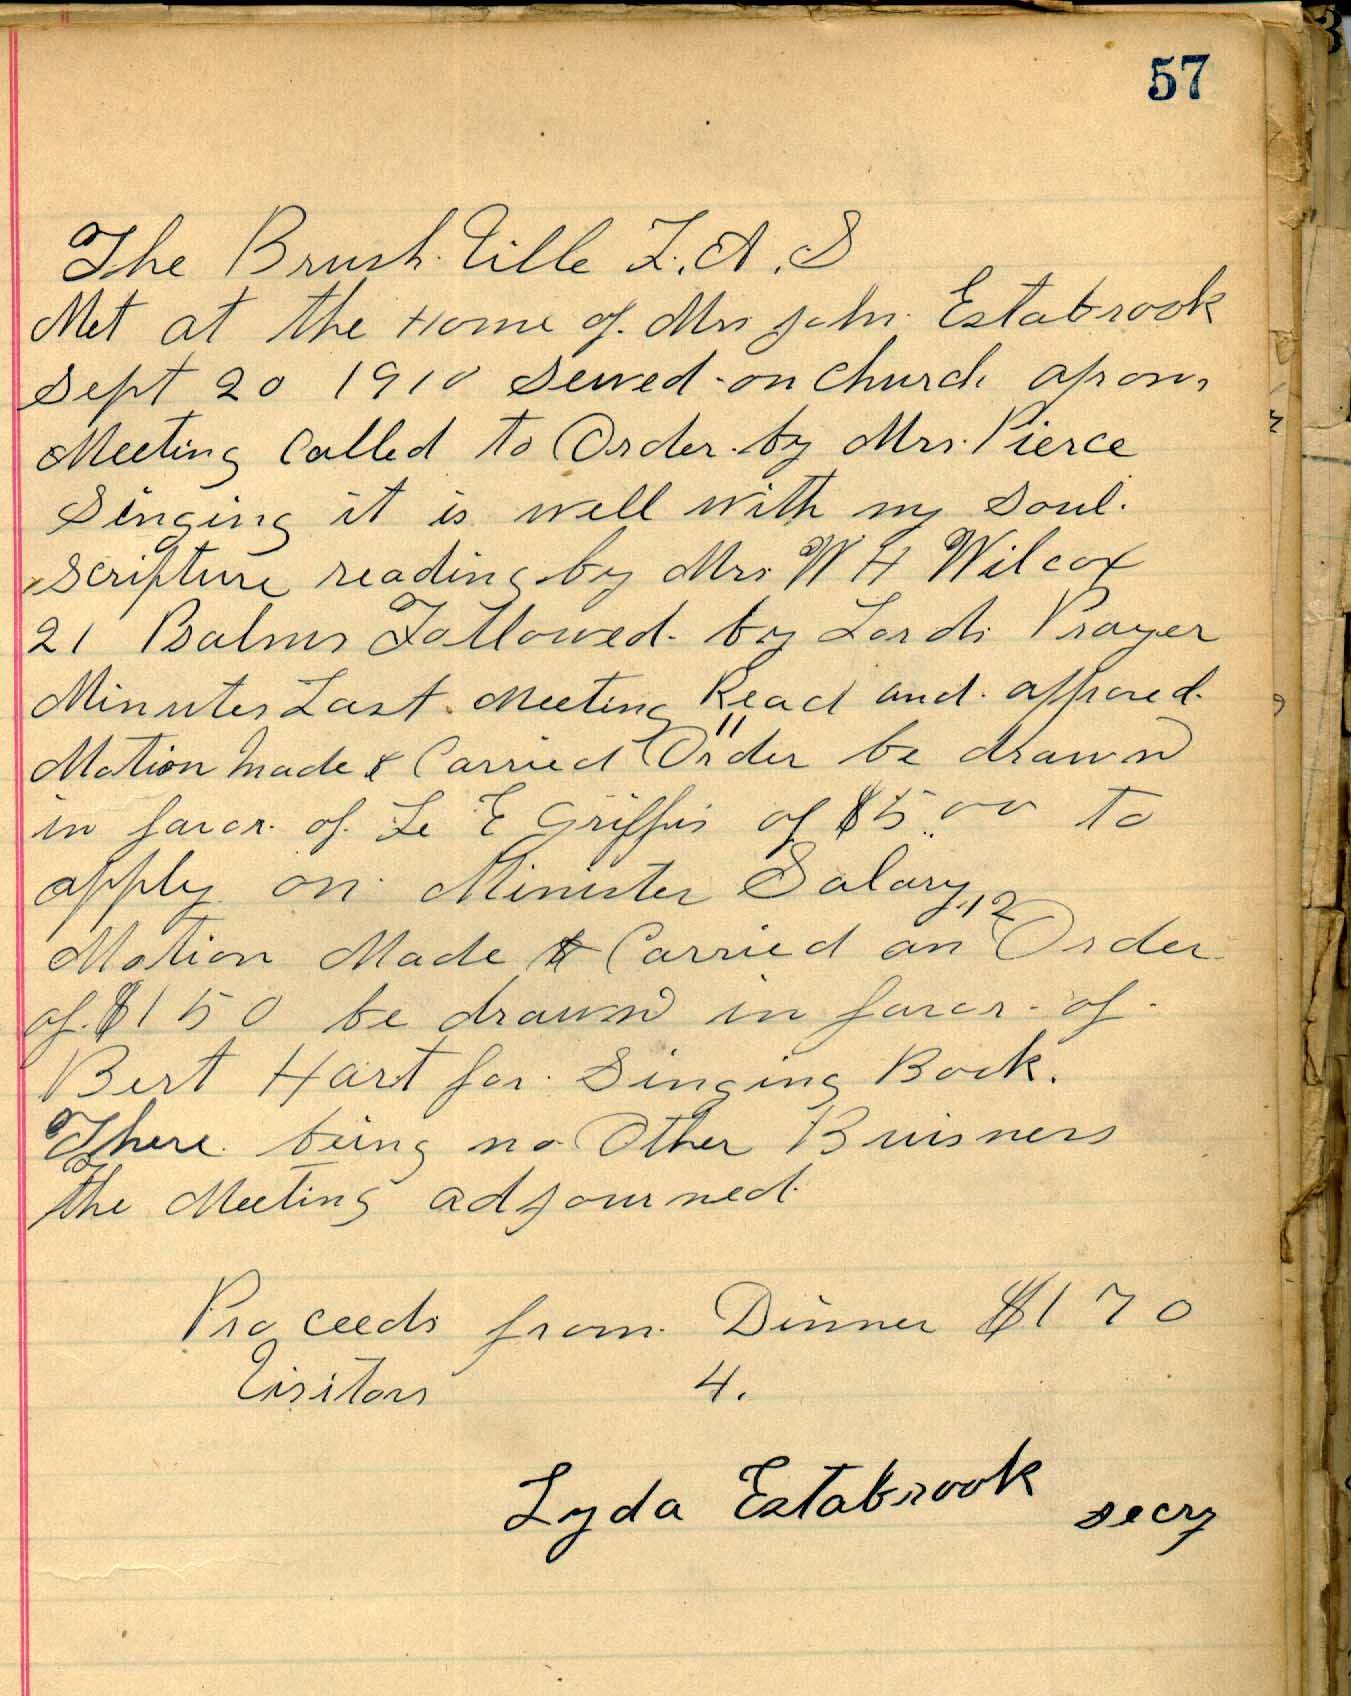 57
The Brush.Ville L.A.S
Met at the Home of Mrs John Estabrook
Sept 20 1910 Sewed on Church aprons
Meeting Called to Order by Mrs. Pierce
Singing it is well with my Soul.
Scripture reading by Mrs W H Wilcox
21 Psalms Followed by Lords Prayer
Minutes Last Meeting Read and appored
Motion Made & Carried Order 11 be drawn
in favor of Le E Griffis of $5.00 to
apply on Minister Salary
Motion Made & Carried an Order 12
of $1 50 be drawn in favor of
Bert Hart for Singing Book.
There being no Other Buisness
The Meeting adjourned
Proceeds from Dinner $1 70
Visitors 4.
Lyda Estabrook secry